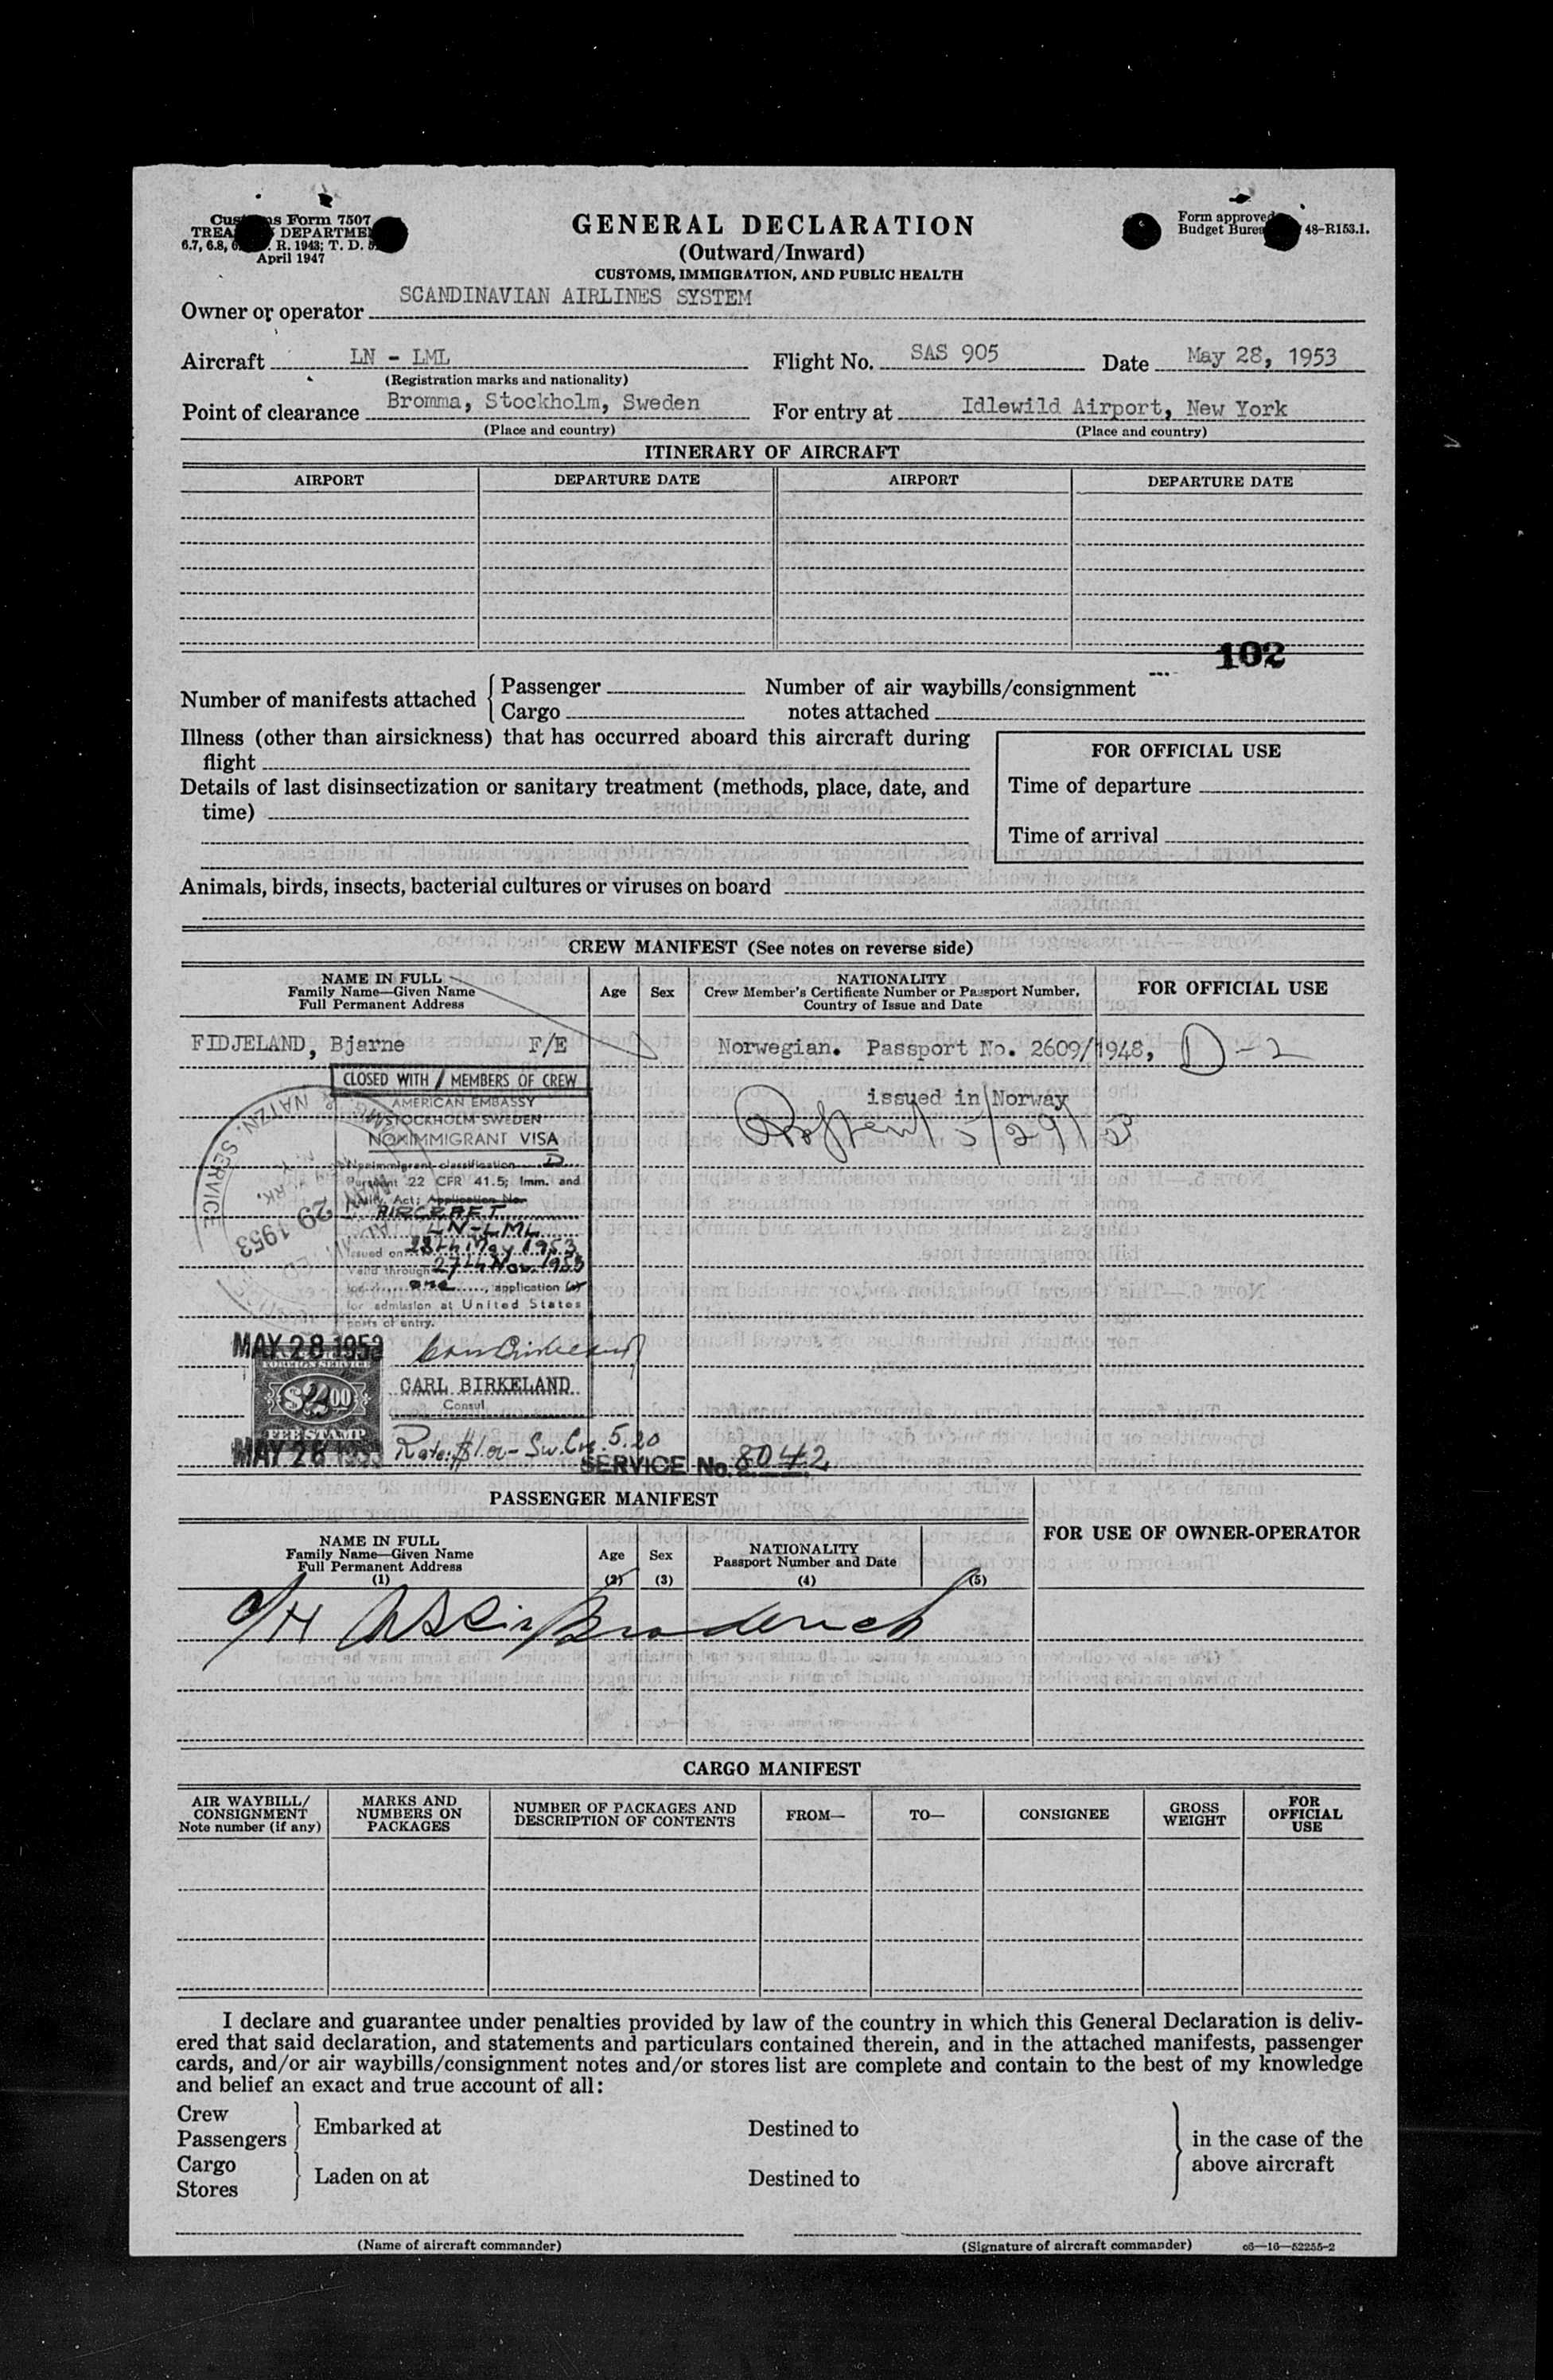 Customs Form 7507
TREASURY DEPARTMENT
6.7, 6.8, R. 1943; T. D.
April 1947
GENERAL DECLARATION
(Outward/Inward)
CUSTOMS, IMMIGRATION, AND PUBLIC HEALTH
Form approved
Budget Bureau 48-R153.1.
Owner or operator SCANDINAVIAN AIRLINES SYSTEM
Aircraft LN - LML Flight No. SAS 905 Date May 28, 1953
(Registration marks and nationality)
Point of clearance Bromma, Stockholm, Sweden For entry at Idlewild Airport, New York
(Place and country) (Place and country)
ITINERARY OF AIRCRAFT
AIRPORT DEPARTURE DATE AIRPORT DEPARTURE DATE
102
Number of manifests attached { Passenger Number of air waybills/consignment
Cargo notes attached
Illness (other than airsickness) that has occurred aboard this aircraft during
flight
FOR OFFICIAL USE
Details of last disinsectization or sanitary treatment (methods, place, date, and
time)
Time of departure
Time of arrival
Animals, birds, insects, bacterial cultures or viruses on board
CREW MANIFEST (See notes on reverse side)
NAME IN FULL
Family Name—Given Name
Full Permanent Address
Age Sex
NATIONALITY
Crew Member's Certificate Number or Passport Number,
Country of Issue and Date
FOR OFFICIAL USE
FIDJELAND, Bjarne F/E Norwegian. Passport No. 2609/1948, D-2
issued in Norway
5/29/53
CLOSED WITH 1 MEMBERS OF CREW
AMERICAN EMBASSY
STOCKHOLM SWEDEN
NONIMMIGRANT VISA
Nonimmigrant classification D
Pursuant 22 CFR 41.5; Imm. and
Natly. Act; Application No.
AIRCRAFT
LN-LML
Issued on 28th May 1953
Valid through 27th Nov. 1953
for one, application (s)
for admission at United States
posts of entry.
& NATZN. SERVICE
MAY 29 1953
MAY 28 1953
FOREIGN SERVICE
$2.00
FEE STAMP
MAY 28 1953
CARL BIRKELAND
Consul
Rate: $1.00- Sw.Crs. 5.20
SERVICE No. 8042
PASSENGER MANIFEST
NAME IN FULL
Family Name—Given Name
Full Permanent Address
(1)
Age
(2)
Sex
(3)
NATIONALITY
Passport Number and Date
(4)
(5)
FOR USE OF OWNER-OPERATOR
CARGO MANIFEST
AIR WAYBILL/
CONSIGNMENT
Note number (if any)
MARKS AND
NUMBERS ON
PACKAGES
NUMBER OF PACKAGES AND
DESCRIPTION OF CONTENTS
FROM—
TO—
CONSIGNEE
GROSS
WEIGHT
FOR
OFFICIAL
USE
I declare and guarantee under penalties provided by law of the country in which this General Declaration is deliv-
ered that said declaration, and statements and particulars contained therein, and in the attached manifests, passenger
cards, and/or air waybills/consignment notes and/or stores list are complete and contain to the best of my knowledge
and belief an exact and true account of all:
Crew
Passengers } Embarked at Destined to
Cargo
Stores } Laden on at Destined to
in the case of the
above aircraft
(Name of aircraft commander) (Signature of aircraft commander) c6—16—52255-2